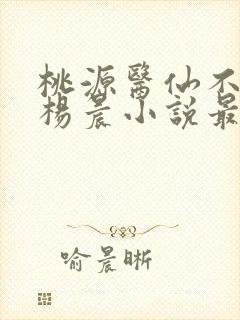 桃源醫仙不
楊晨小說最
喻晨晰